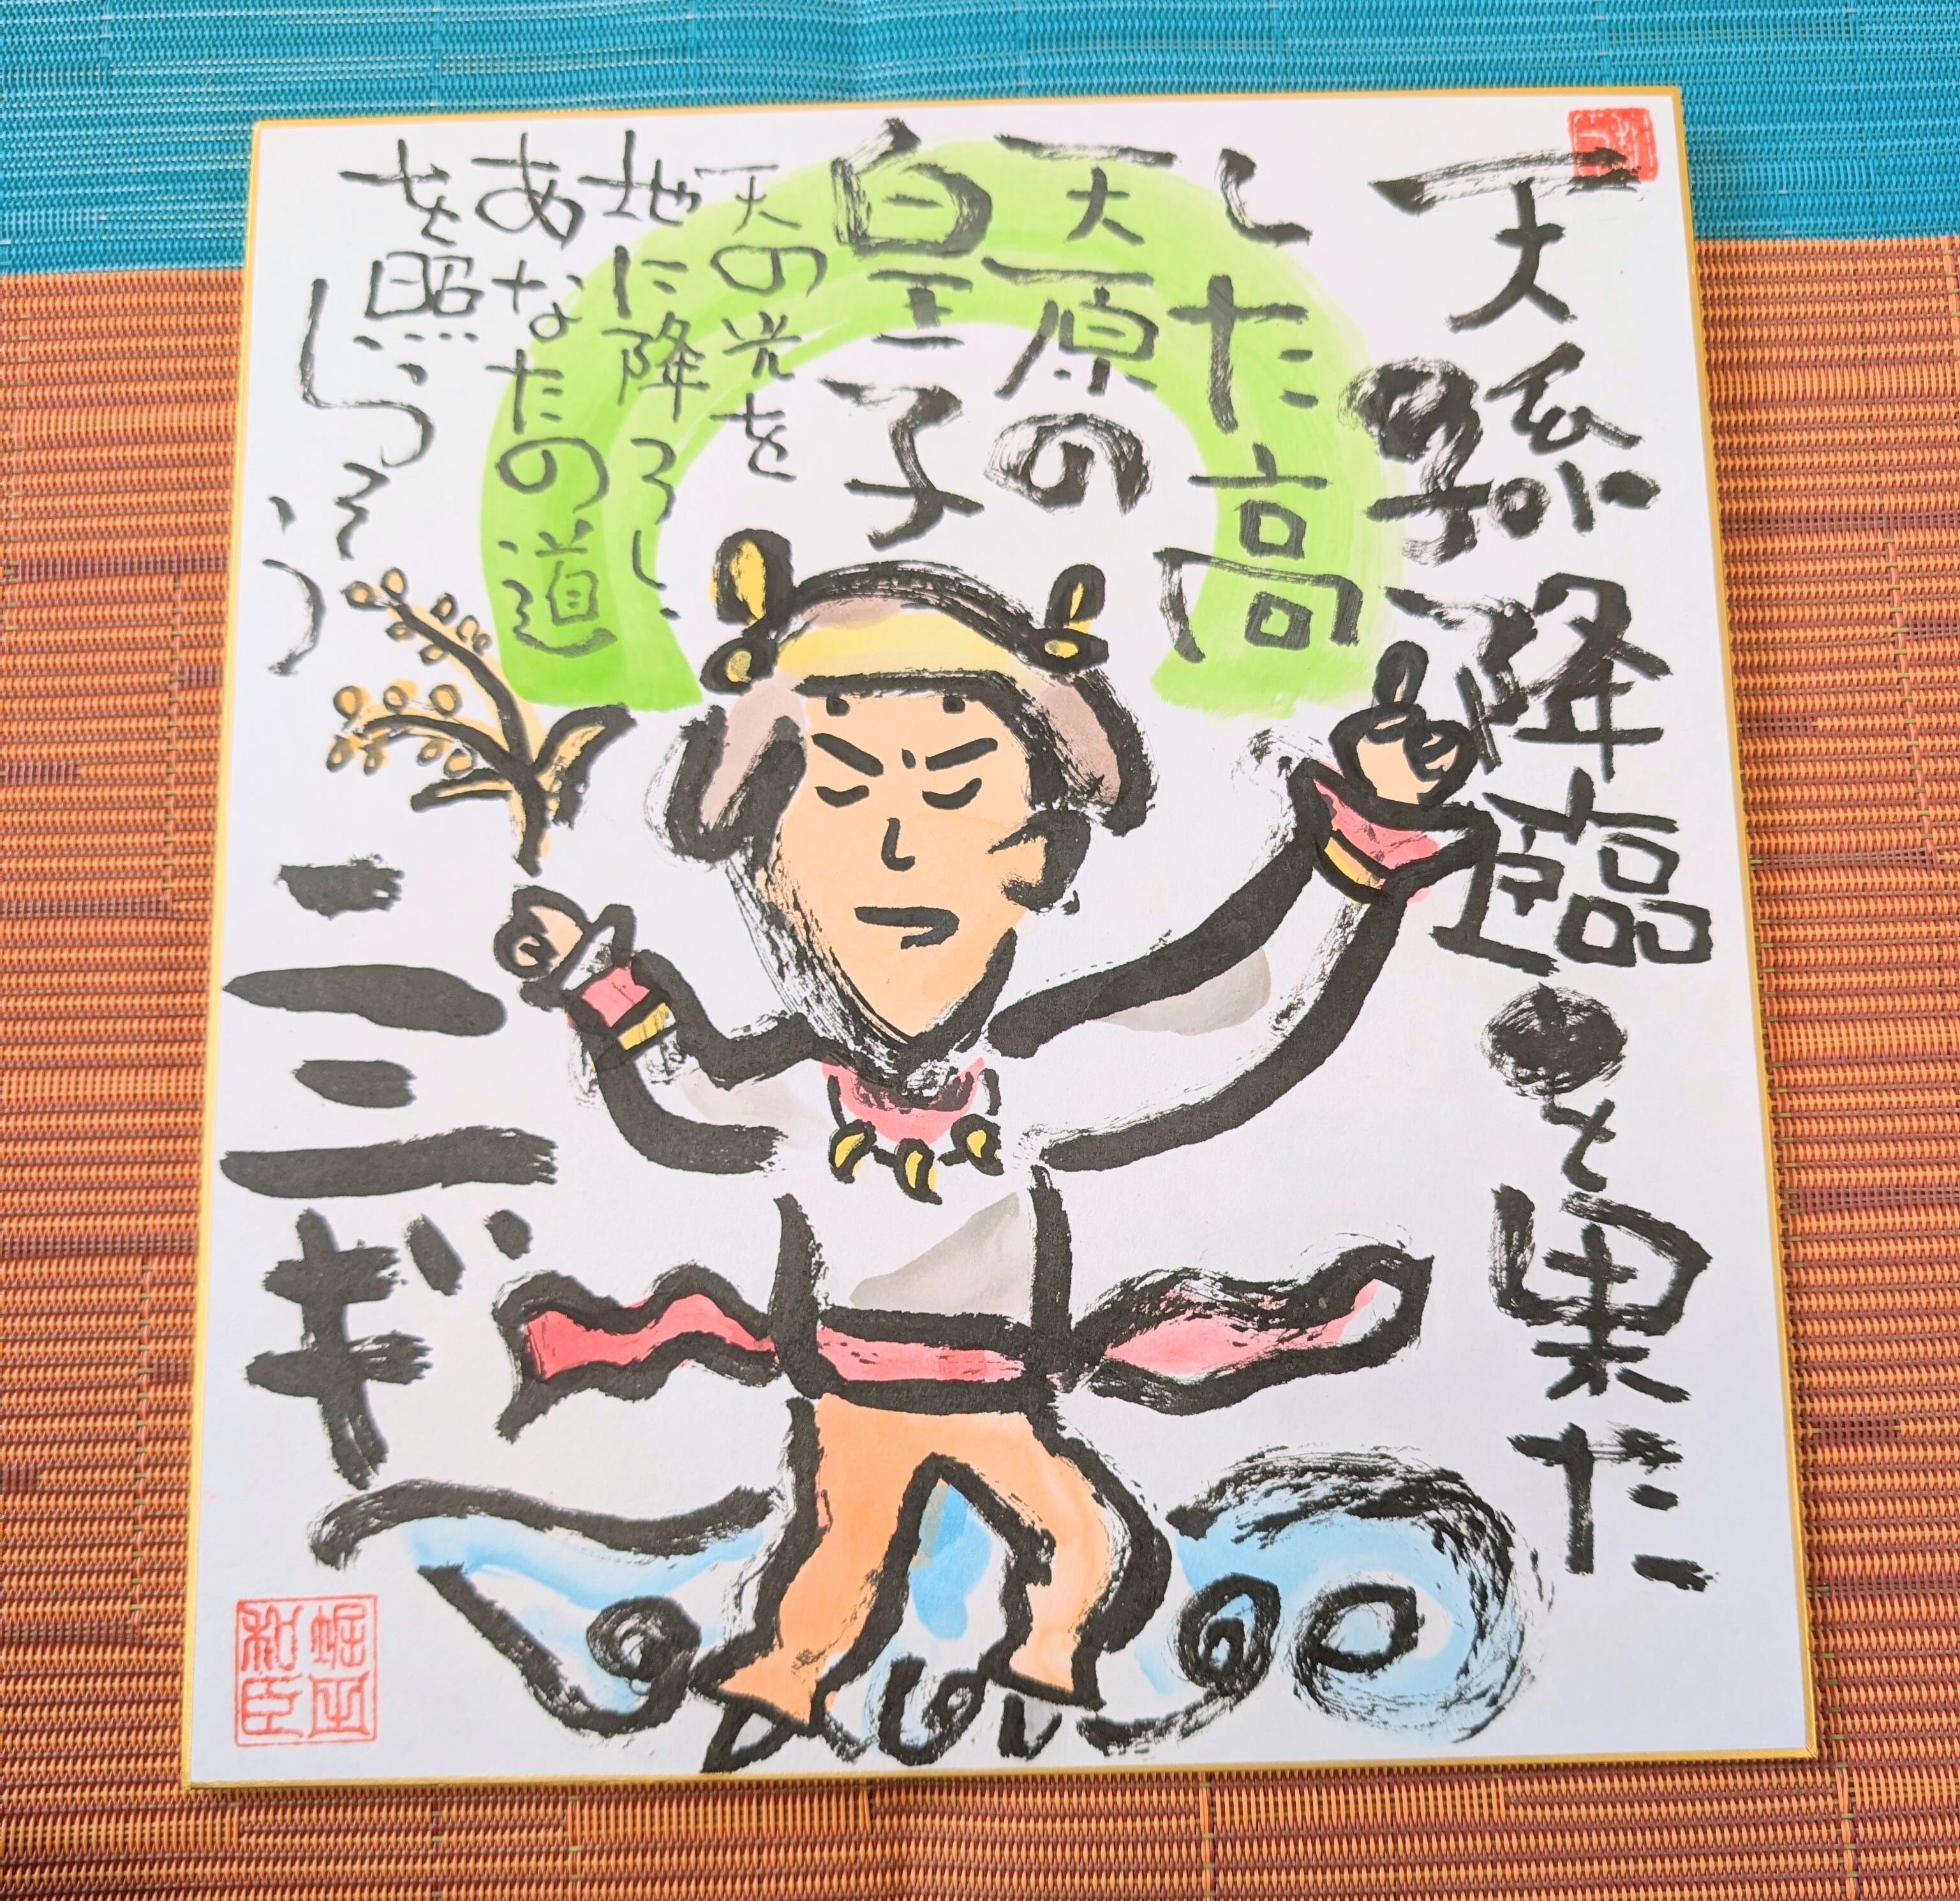 天孫降臨を果た
した高
天原の
皇子
天の光を
地に降ろし、
あなたの道
を照らそう
ニニギ